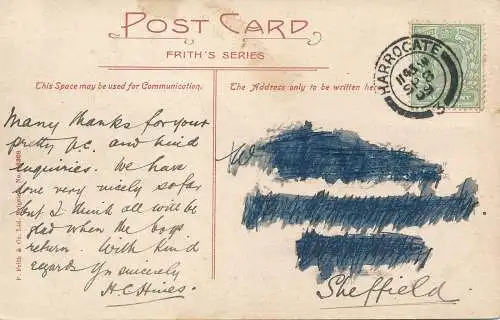 POST CARD
FRITH'S SERIES
This Space may be used for Communication.
The Address only to be written here
HARROGATE
Many thanks for your
pretty P.C. and kind
inquiries. We have
done very nicely so far
but I think all will be
glad when the boys
return. With kind
regards Yrs sincerely
H.C. Hines.
Sheffield.
F. Frith & Co. Ltd.